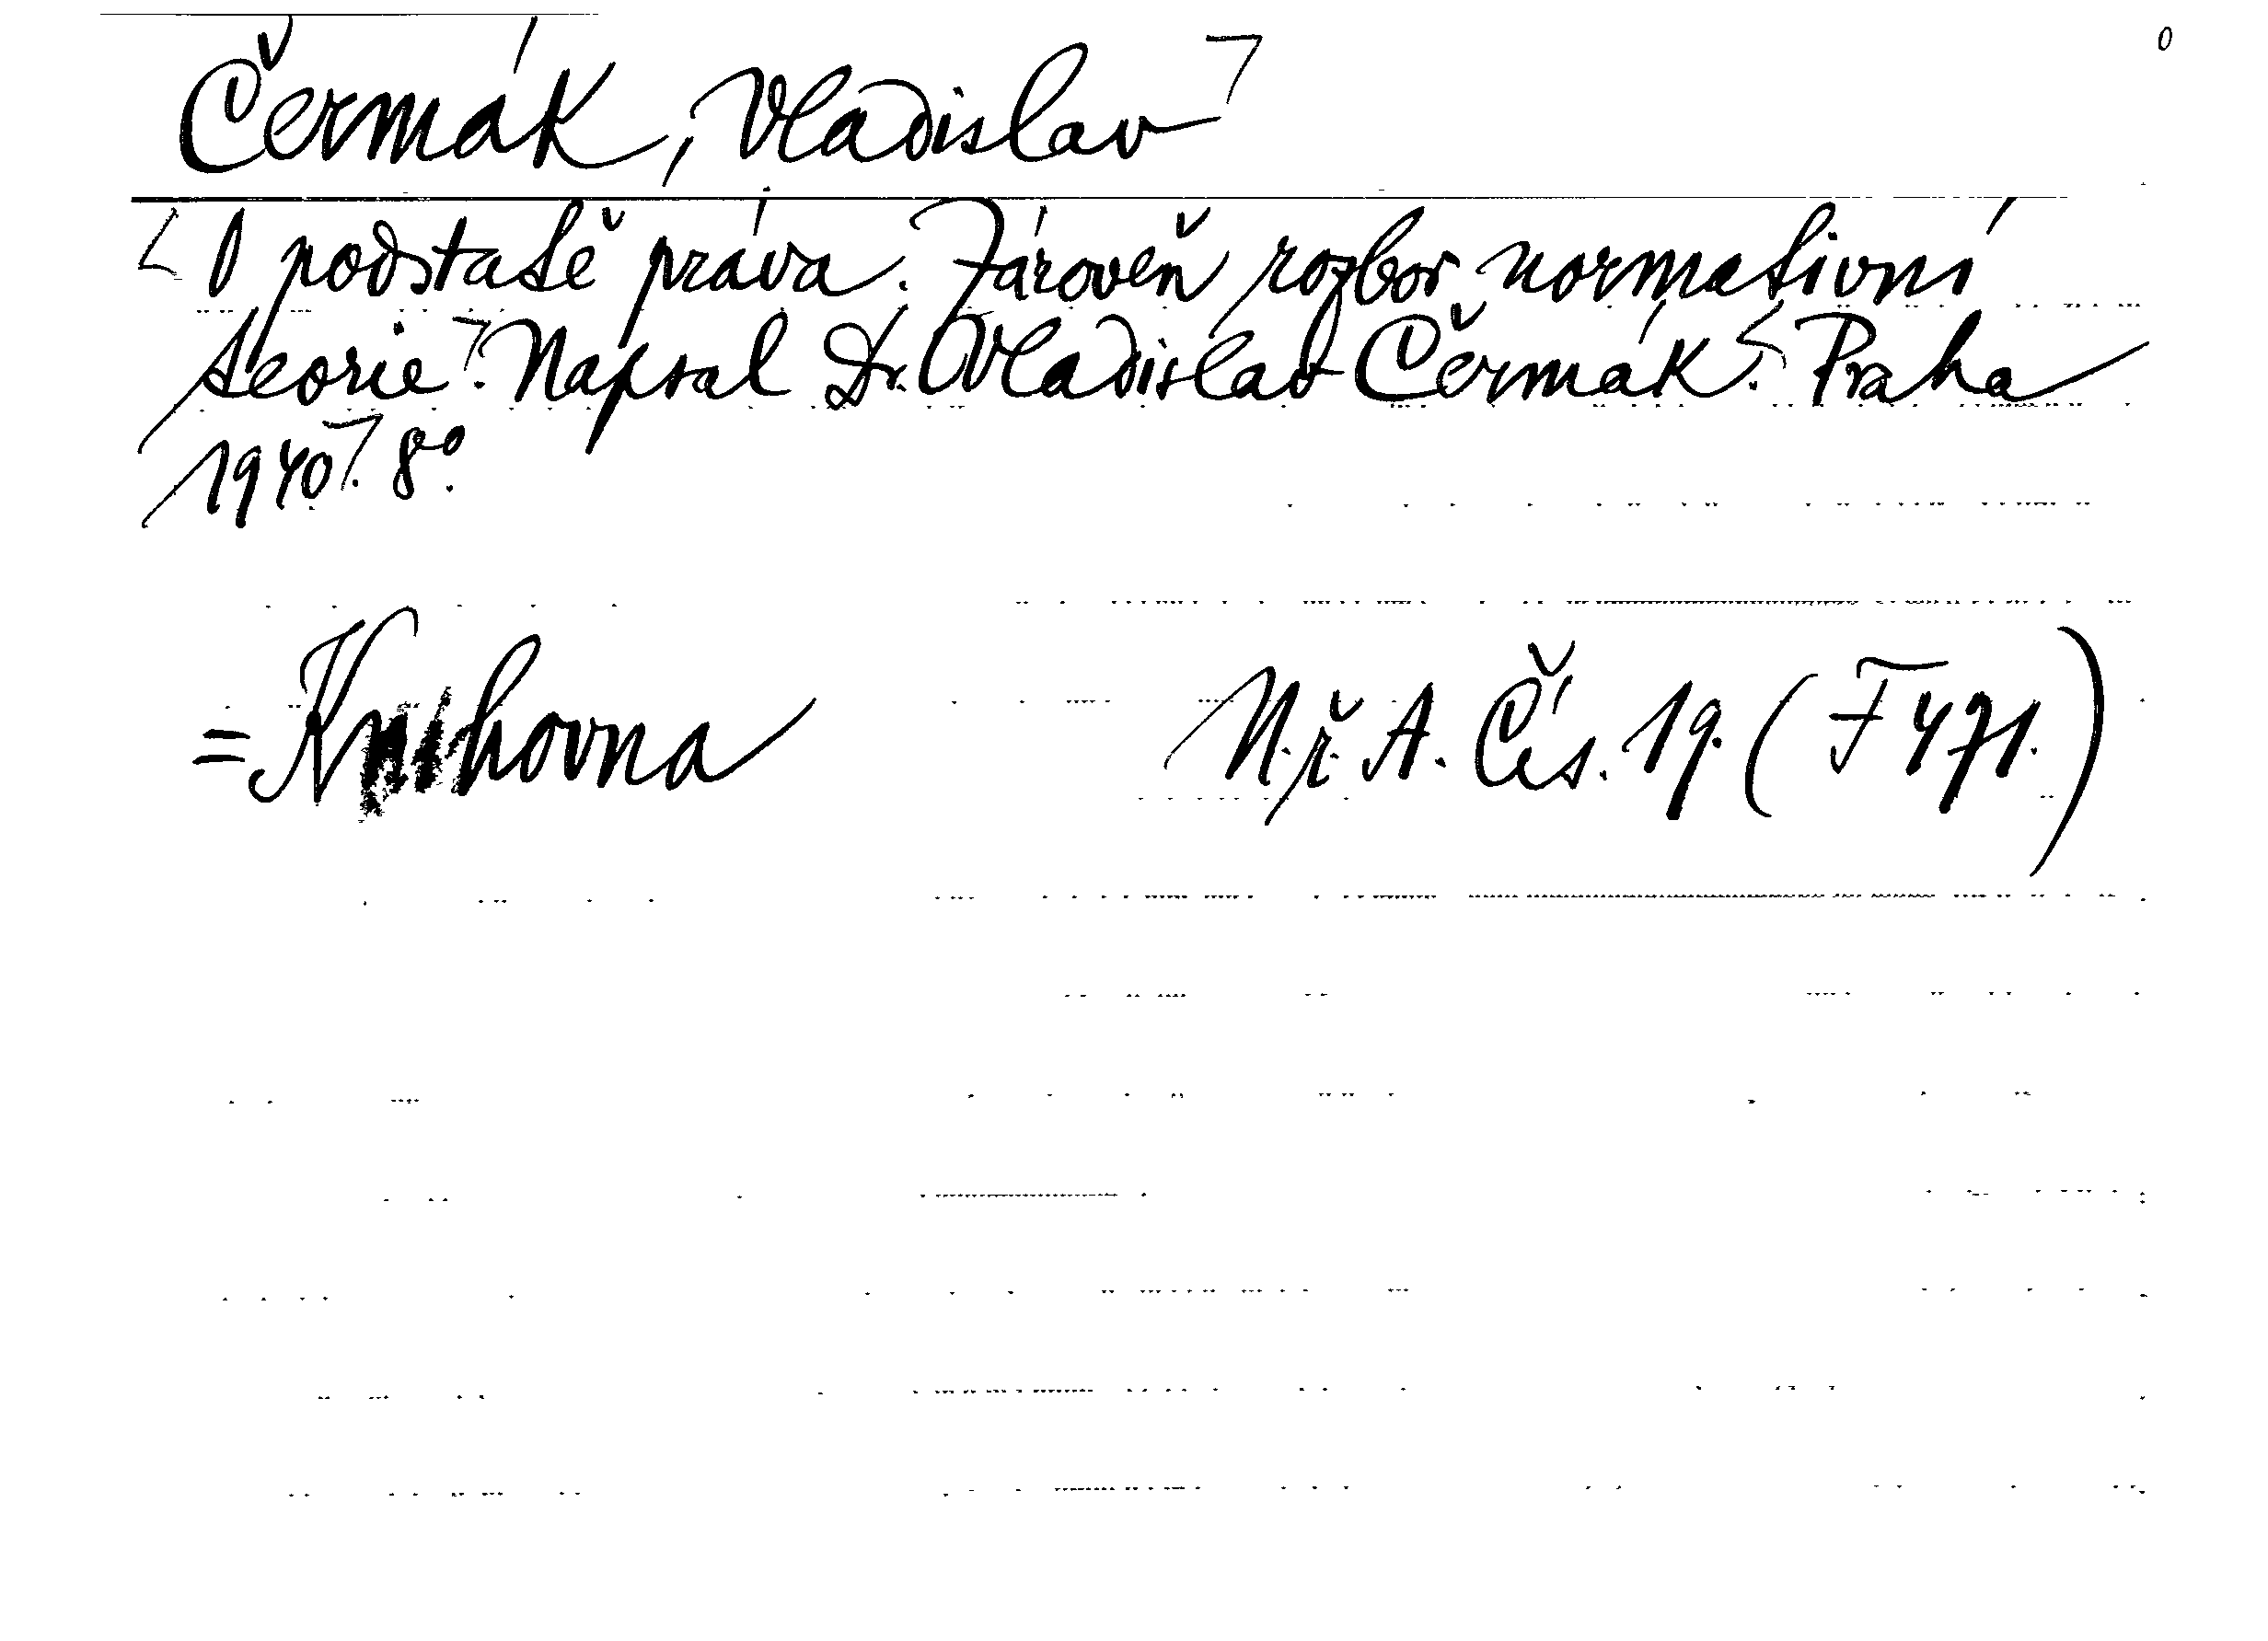 Čermák, Vladislav
O podstatě práva. Zároveň rozbor normativní
teorie. Napsal Dr. Vladislav Čermák. Praha
1940. 8°.
= Knihovna N. ř. A. Čís. 19. (F 471.)